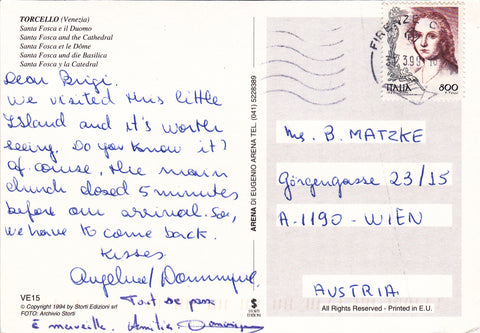 TORCELLO (Venezia)
Santa Fosca e il Duomo
Santa Fosca and the Cathedral
Santa Fosca et le Dôme
Santa Fosca und die Basilica
Santa Fosca y la Catedral
Dear Brigi.
We visited this little
Island and it's worth
seeing. Do you know it?
Of course, the main
church closed 5 minutes
before our arrival. So,
we have to come back.
Kisses
Angelina/Dominique
Tout se passe
à merveille. Amitiés Dominique
VE15
© Copyright 1994 by Storti Edizioni srl
FOTO: Archivio Storti
ARENA DI EUGENIO ARENA TEL. (041) 5228389
S
STORTI
EDIZIONI
FIRENZE C
3.99
ITALIA 800
Ms. B. MATZKE
Görgengasse 23/15
A-1190-WIEN
AUSTRIA
All Rights Reserved - Printed in E.U.